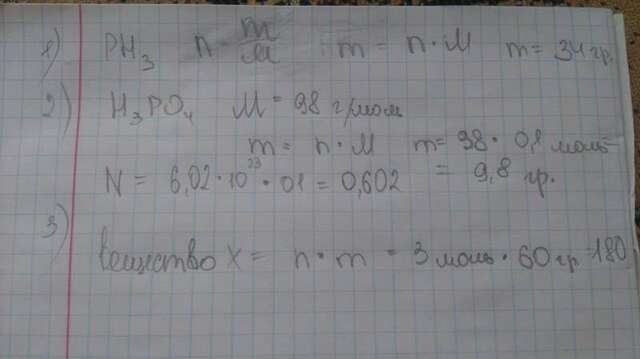 1) PH₃ n = m/M ; m = n·M m = 34 гр.
2) H₃PO₄ M = 98 г/моль
m = n·M m = 98 · 0,1 моль =
N = 6,02·10²³·01 = 0,602 = 9,8 гр.
3)
вещество X = n·m = 3 моль · 60 гр = 180